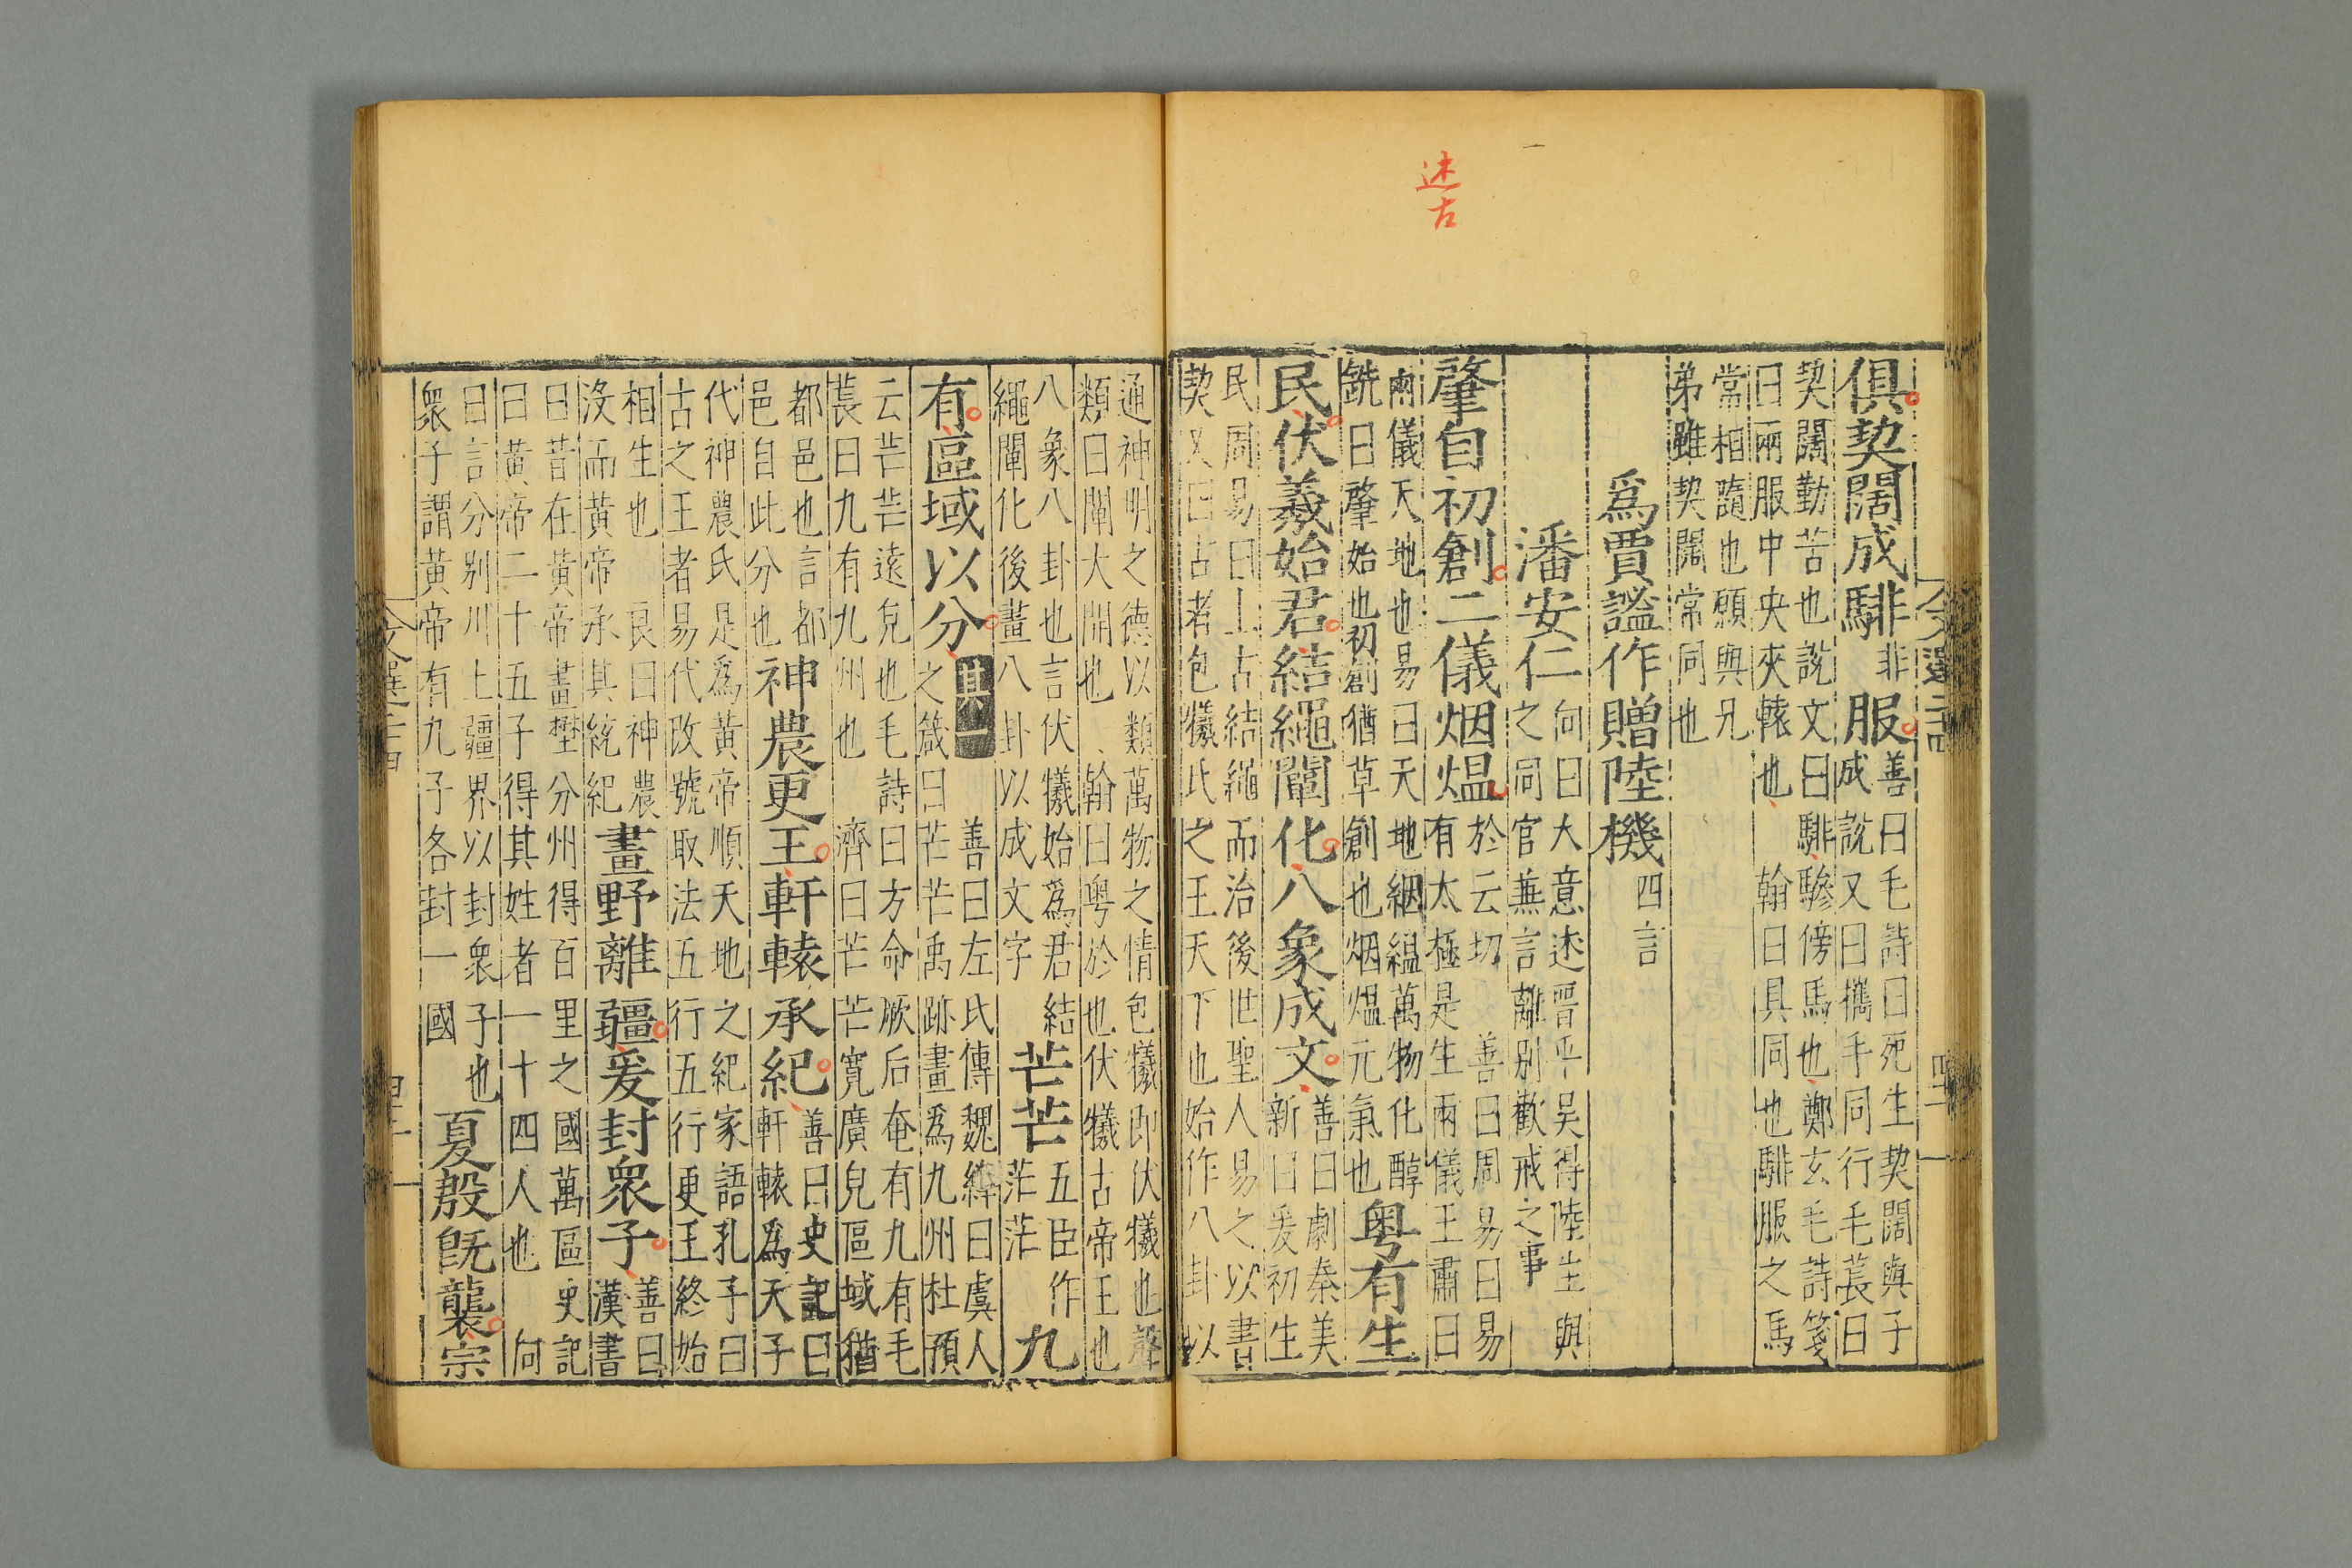 述古
文選二十四
俱契闊成騑非服善曰毛詩曰死生契闊與子
成說又曰攜手同行毛萇曰
契闊勤苦也說文曰騑驂傍馬也鄭玄毛詩箋
曰兩服中央夾轅也 翰曰具同也騑服之馬
常相隨也願與兄
弟雖契闊常同也
爲賈謐作贈陸機四言
潘安仁向曰大意述晉平吳得陸生與
之同官兼言離別歡戒之事
肇自初創二儀烟熅於云切 善曰周易曰易
有太極是生兩儀王肅曰
兩儀天地也易曰天地絪縕萬物化醇
銑曰肇始也初創猶草創也烟熅元氣也粵有生
民伏羲始君結繩闡化八象成文善曰劇秦美
新曰爰初生
民周易曰上古結繩而治後世聖人易之以書
契又曰古者包犧氏之王天下也始作八卦以
通神明之德以類萬物之情包犧即伏犧也聲
類曰闡大開也 翰曰粤於也伏犧古帝王也
八象八卦也言伏犧始爲君結
繩闡化後畫八卦以成文字芒芒五臣作
茫茫九
有區域以分其一善曰左氏傳魏絳曰虞人
之箴曰芒芒禹跡畫爲九州杜預
云芒芒遠皃也毛詩曰方命厥后奄有九有毛
萇曰九有九州也 濟曰芒芒寬廣皃區域猶
都邑也言都
邑自此分也神農更王軒轅承紀善曰史記曰
軒轅爲天子
代神農氏是爲黃帝順天地之紀家語孔子曰
古之王者易代改號取法五行五行更王終始
相生也 良曰神農
沒而黃帝承其統紀畫野離疆爰封衆子善曰
漢書
曰昔在黃帝畫壄分州得百里之國萬區史記
曰黃帝二十五子得其姓者一十四人也 向
曰言分別川土疆界以封衆子也
衆子謂黃帝有九子各封一國夏殷旣襲宗